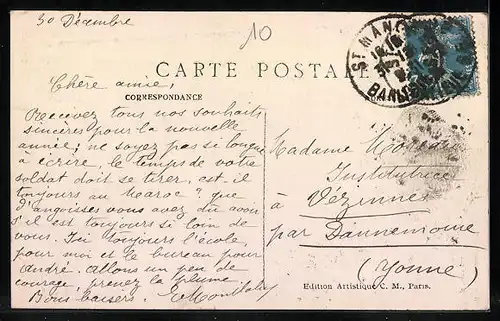 30 Décembre
10
CARTE POSTALE
CORRESPONDANCE
Chère amie,
Recevez tous nos souhaits
sincères pour la nouvelle
année; ne soyez pas si longue
à écrire, le temps de votre
soldat doit se tirer, est il
toujours au Maroc? que
d'angoisses vous avez dû avoir
s'il est toujours si loin de
vous. Ici toujours l'école
pour moi et le bureau pour
André. Allons un peu de
courage, prenez la plume.
Bons baisers.
ST MAN
Madame
Institutrice
à Vézinnes
par Dannemoine
(Yonne)
Edition Artistique C. M., Paris.